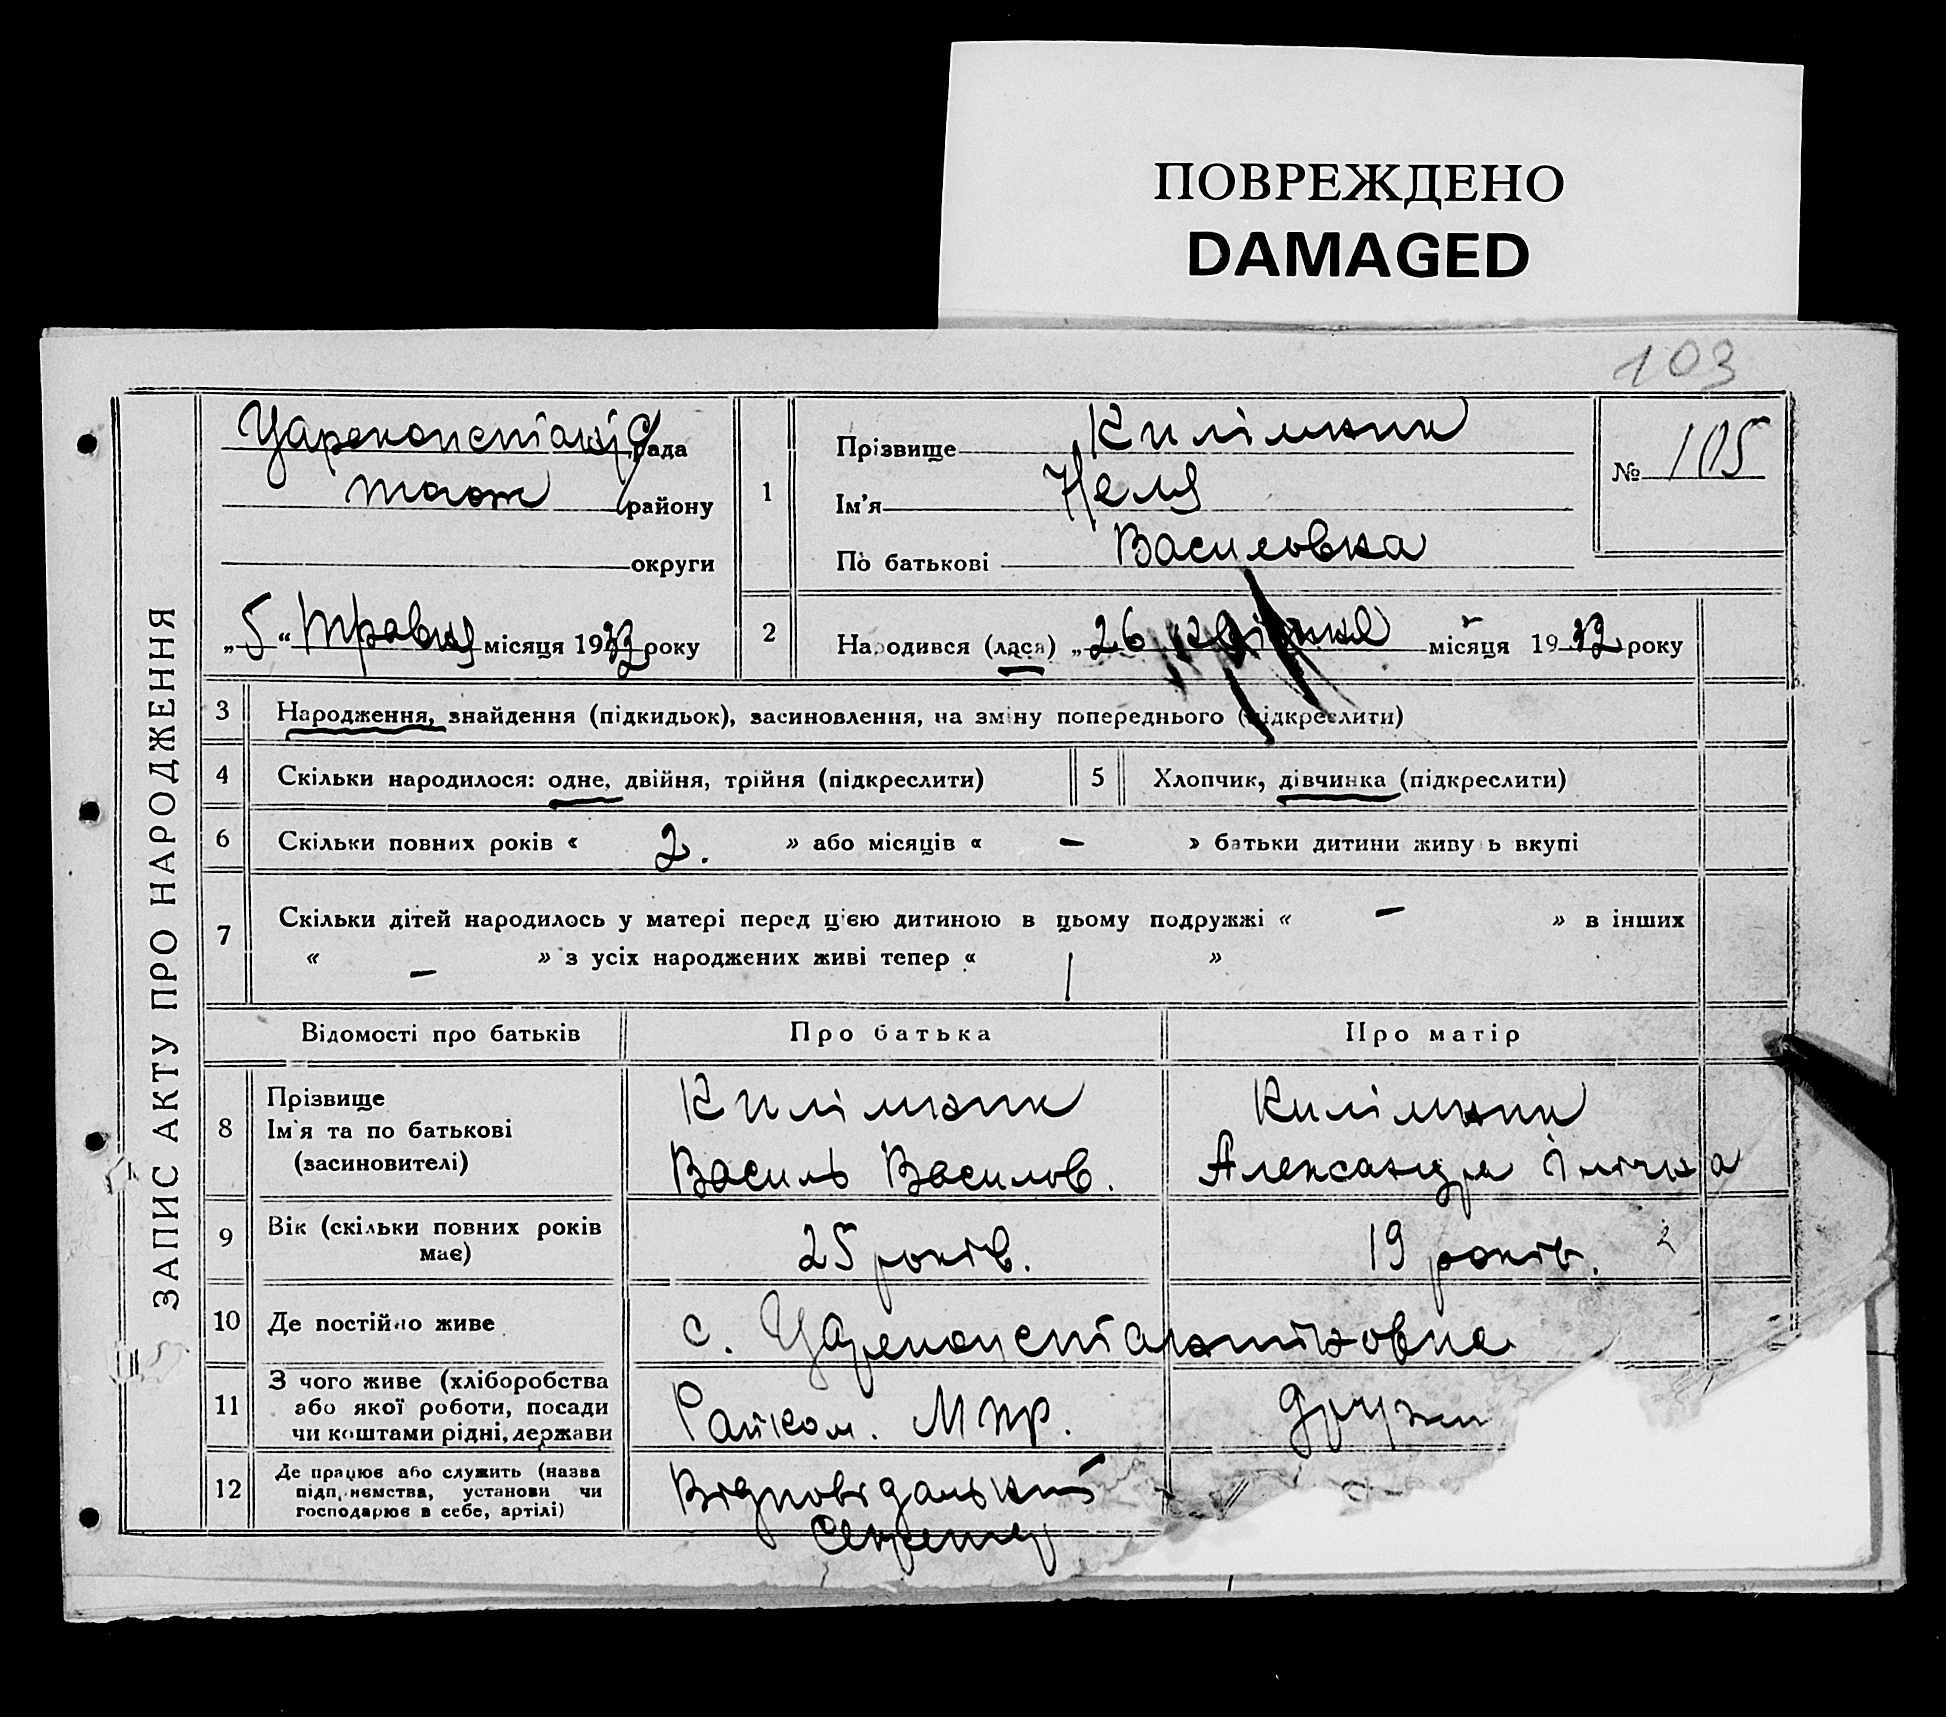 ПОВРЕЖДЕНО
DAMAGED
103
ЗАПИС АКТУ ПРО НАРОДЖЕННЯ
рада
району
округи
„5“ Травня місяця 1932 року
1
Прізвище Килімник
Ім'я Неля
По батькові Василовна
№ 105
2
Народився (лася) „26 квітня місяця 1932 року
3 Народження, знайдення (підкидьок), засиновлення, на зміну попереднього (підкреслити)
4 Скільки народилося: одне, двійня, трійня (підкреслити)
5 Хлопчик, дівчинка (підкреслити)
6 Скільки повних років « 2. » або місяців « — » батьки дитини живуть вкупі
7 Скільки дітей народилось у матері перед цією дитиною в цьому подружжі « — » в інших
« — » з усіх народжених живі тепер « 1 »
Відомості про батьків Про батька Про матір
8 Прізвище
Ім'я та по батькові
(засиновителі)
Килімник
Василь Василов.
Килімник
Александра Ілічна
9 Вік (скільки повних років
має)
25 років. 19 років.
10 Де постійно живе с. Цареконстантиновка
11 З чого живе (хліборобства
або якої роботи, посади
чи коштами рідні, держави
Райком. Мпр.
12 Де працює або служить (назва
підприємства, установи чи
господарює в себе, артілі)